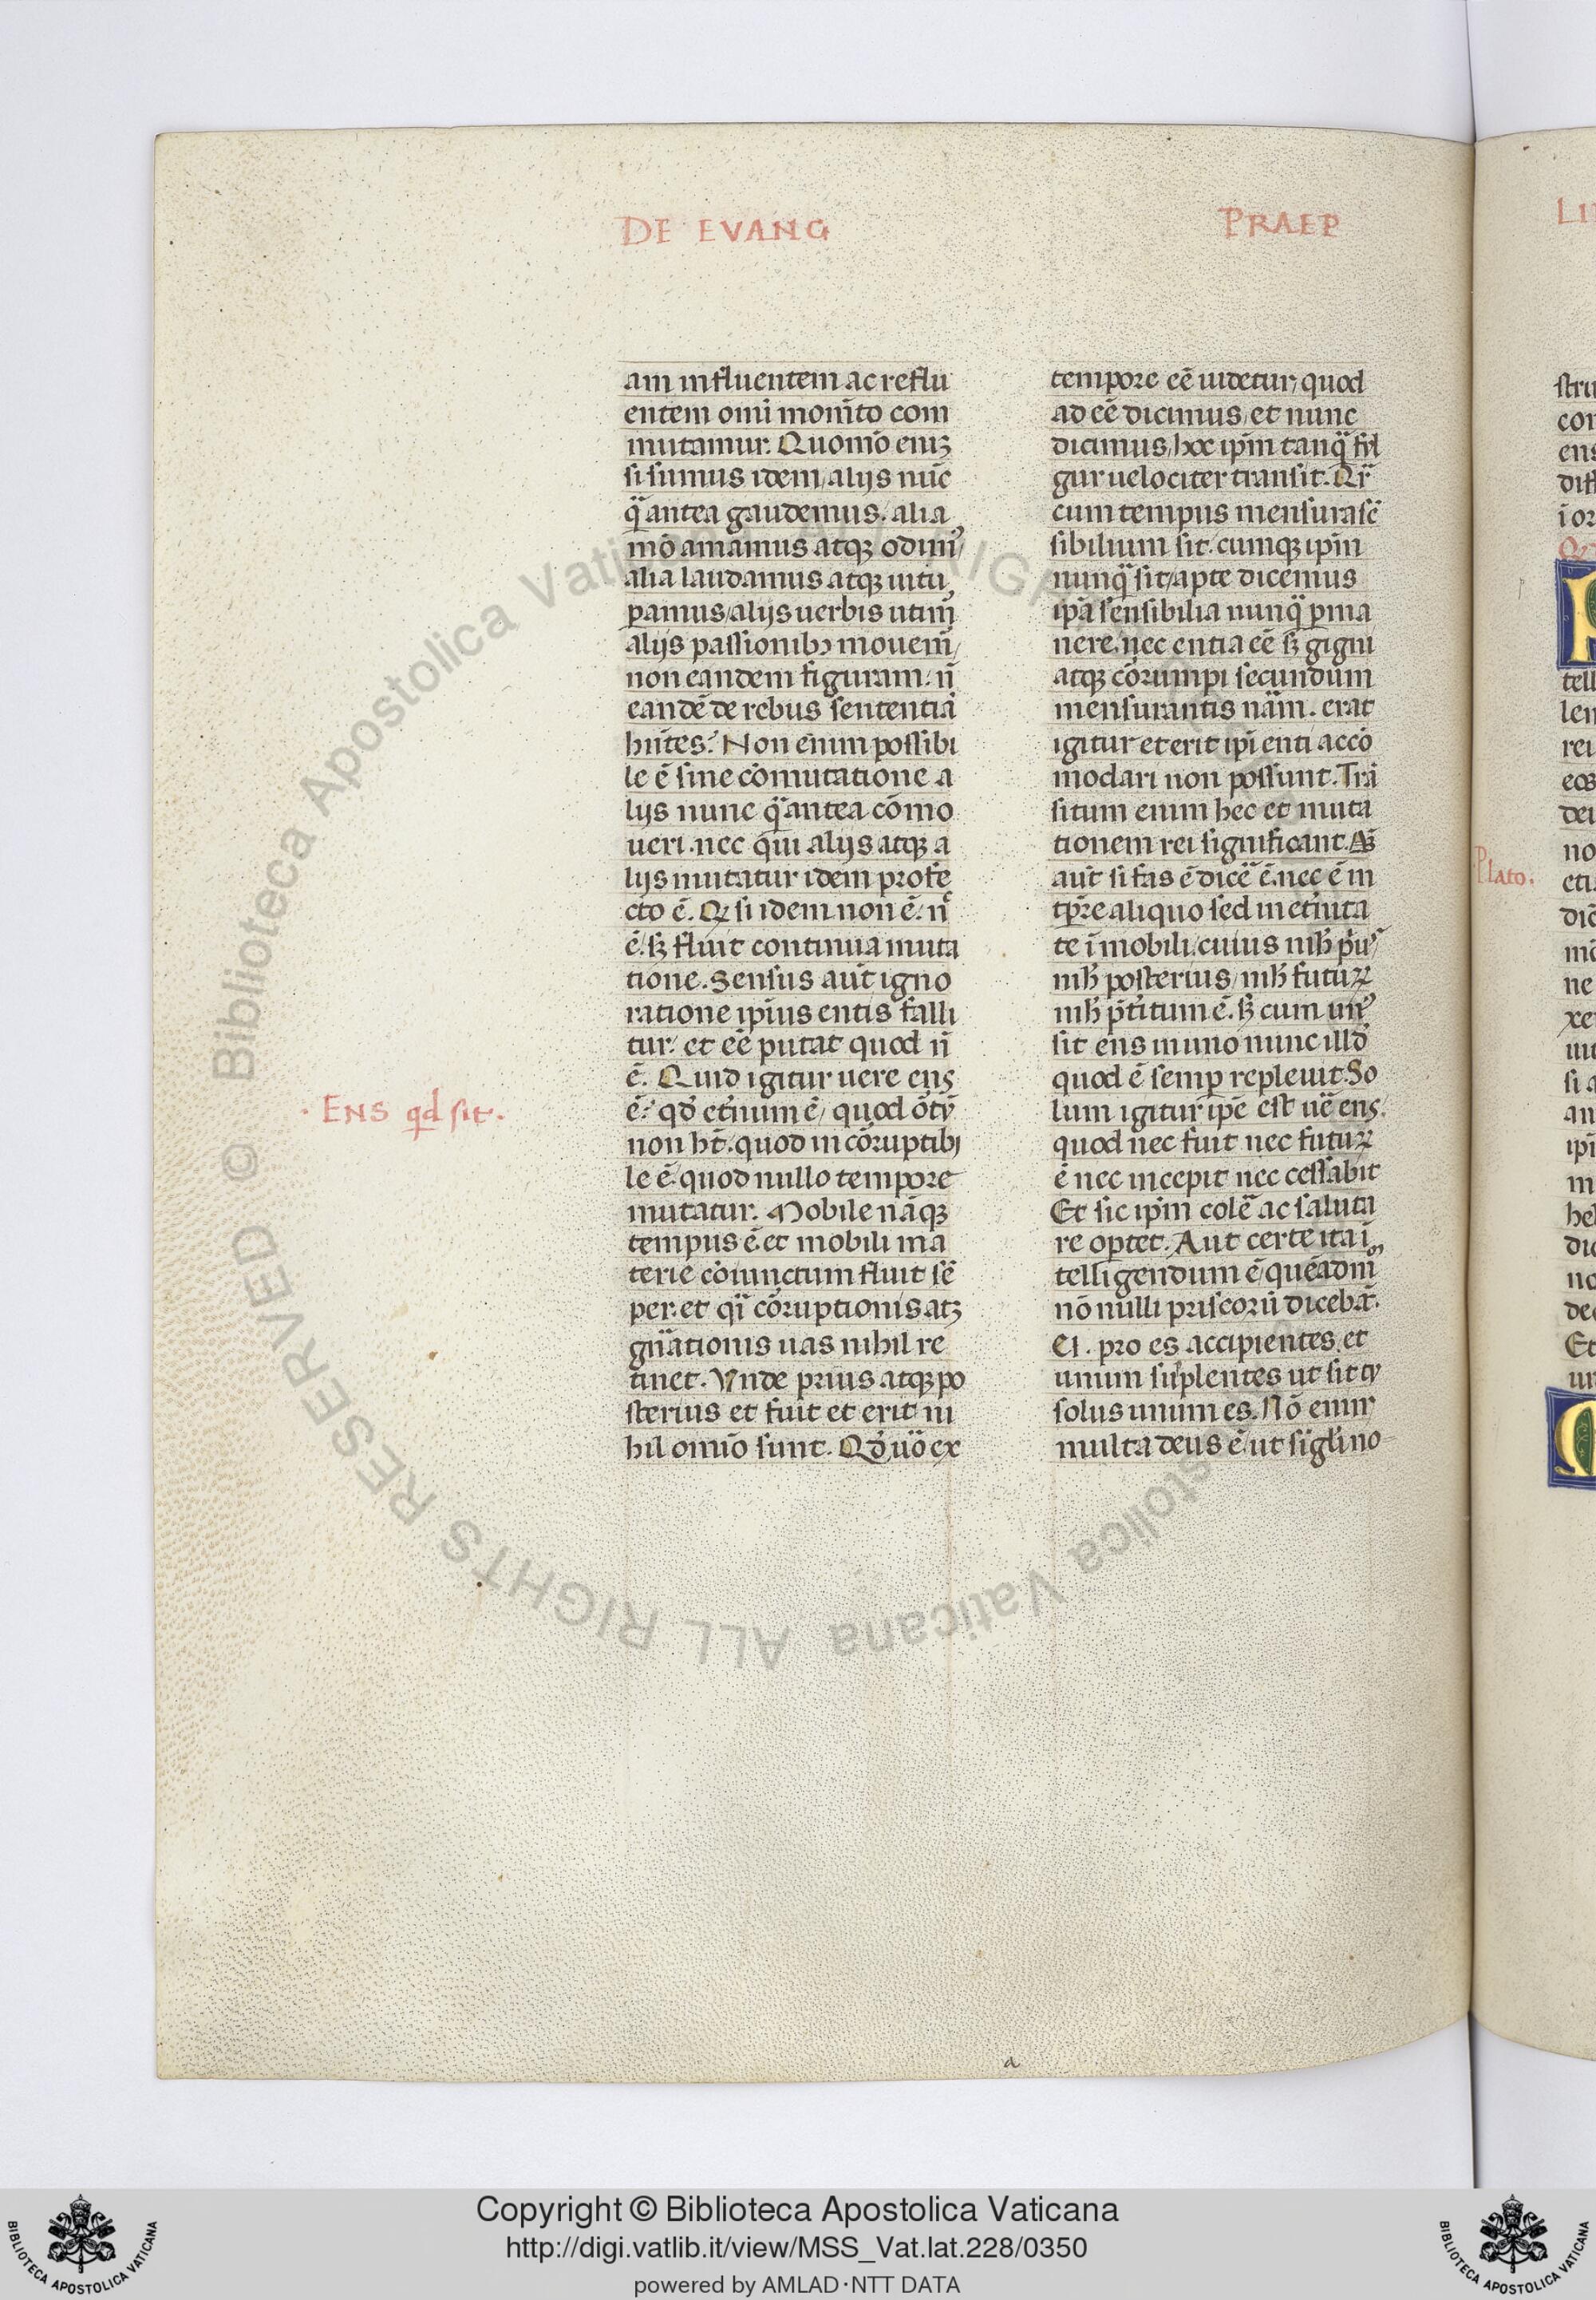 DE EVANG
PRAEP
am influentem ac reflu
entem omĩ momẽto com
mutamur. Quomõ enĩȝ
si sumus idem, alijs nũc
q̃ antea gaudemus. alia
mõ amamus atqȝ odim̃,
alia laudamus atqȝ uitu
pamus, alijs uerbis utim̃
alijs passionibȝ mouem̃,
non eandem figuram. ñ
eandẽ de rebus sententiã
hñtes? Non enim possibi
le ẽ sine cõmutatione a
lijs nunc q̃ antea cõmo
ueri. nec qui alijs atqȝ a
lijs mutatur idem profe
cto ẽ. Qȝ si idem non ẽ. ñ
ẽ. sȝ fluit continua muta
tione. Sensus aũt igno
ratione ip̃ius entis falli
tur. et eẽ putat quod ñ
ẽ. Quid igitur uere ens
ẽ? qđ et̃num ẽ, quod õtũ
non hʒ̃. quod incõruptibi
le ẽ. quod nullo tempore
mutatur. Mobile nãqȝ
tempus ẽ. et mobili ma
terie cõiunctum fluit sẽ
per. et q̃i cõruptionis atȝ
gñationis uas nihil re
tinet. Vnde prius atqȝ po
sterius et fuit et erit ni
hil omĩo sunt. Qđ uõ ex
· ENS qd sit.
tempore eẽ uidetur, quod
ad eẽ dicimus, et nunc
dicimus, hoc ip̃m tanq̃ ful
gur uelociter transit. Qr̃
cum tempus mensura sẽ
sibilium sit. cumqȝ ip̃m
nunq̃ sit, apte dicemus
ip̃a sensibilia nunq̃ pma
nere. nec entia eẽ sȝ gigni
atqȝ cõrumpi secundum
mensurantis nãm. erat
igitur et erit ip̃i enti accõ
modari non possunt. Trã
situm enim hec et muta
tionem rei significant.
aũt si fas ẽ dicẽ ẽ. nec ẽ in
tp̃re aliquo sed in et̃nita
te ĩmobili. cuius nih̃ p̃us
nih̃ posterius, nih̃ futuꝝ
nih̃ p̃titum ẽ. sȝ cum un9
sit ens in uno nunc illđ
quod ẽ semp repleuit. So
lum igitur ip̃e est uẽ ens.
quod nec fuit nec futuꝝ
ẽ nec incepit nec cessabit
Et sic ip̃m colẽ ac saluta
re optet. Aut certe ita ĩ
telligendum ẽ, quẽadm̃
nõ nulli priscorũ dicebãt.
EI. pro es accipientes. et
unum suplentes ut sit tu
solus unum es. Nõ enim
multa deus ẽ, ut sigl̃i no
a
Plato.
Copyright © Biblioteca Apostolica Vaticana
http://digi.vatlib.it/view/MSS_Vat.lat.228/0350
powered by AMLAD·NTT DATA
BIBLIOTECA APOSTOLICA VATICANA
BIBLIOTECA APOSTOLICA VATICANA
© Biblioteca Apostolica Vaticana ALL RIGHTS RESERVED